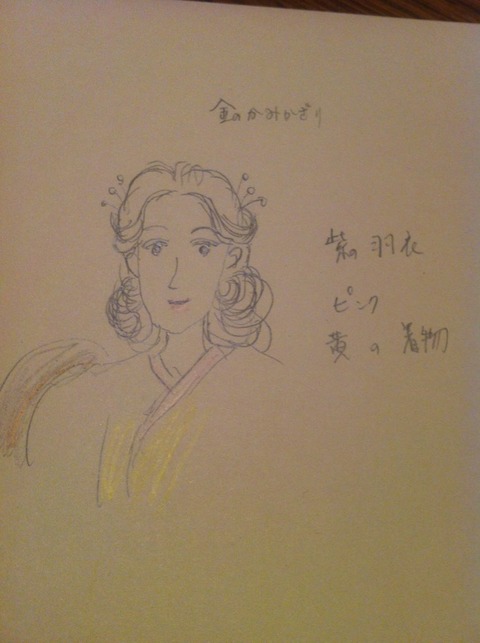 金のかみかざり
紫の羽衣
ピンク
黄の着物